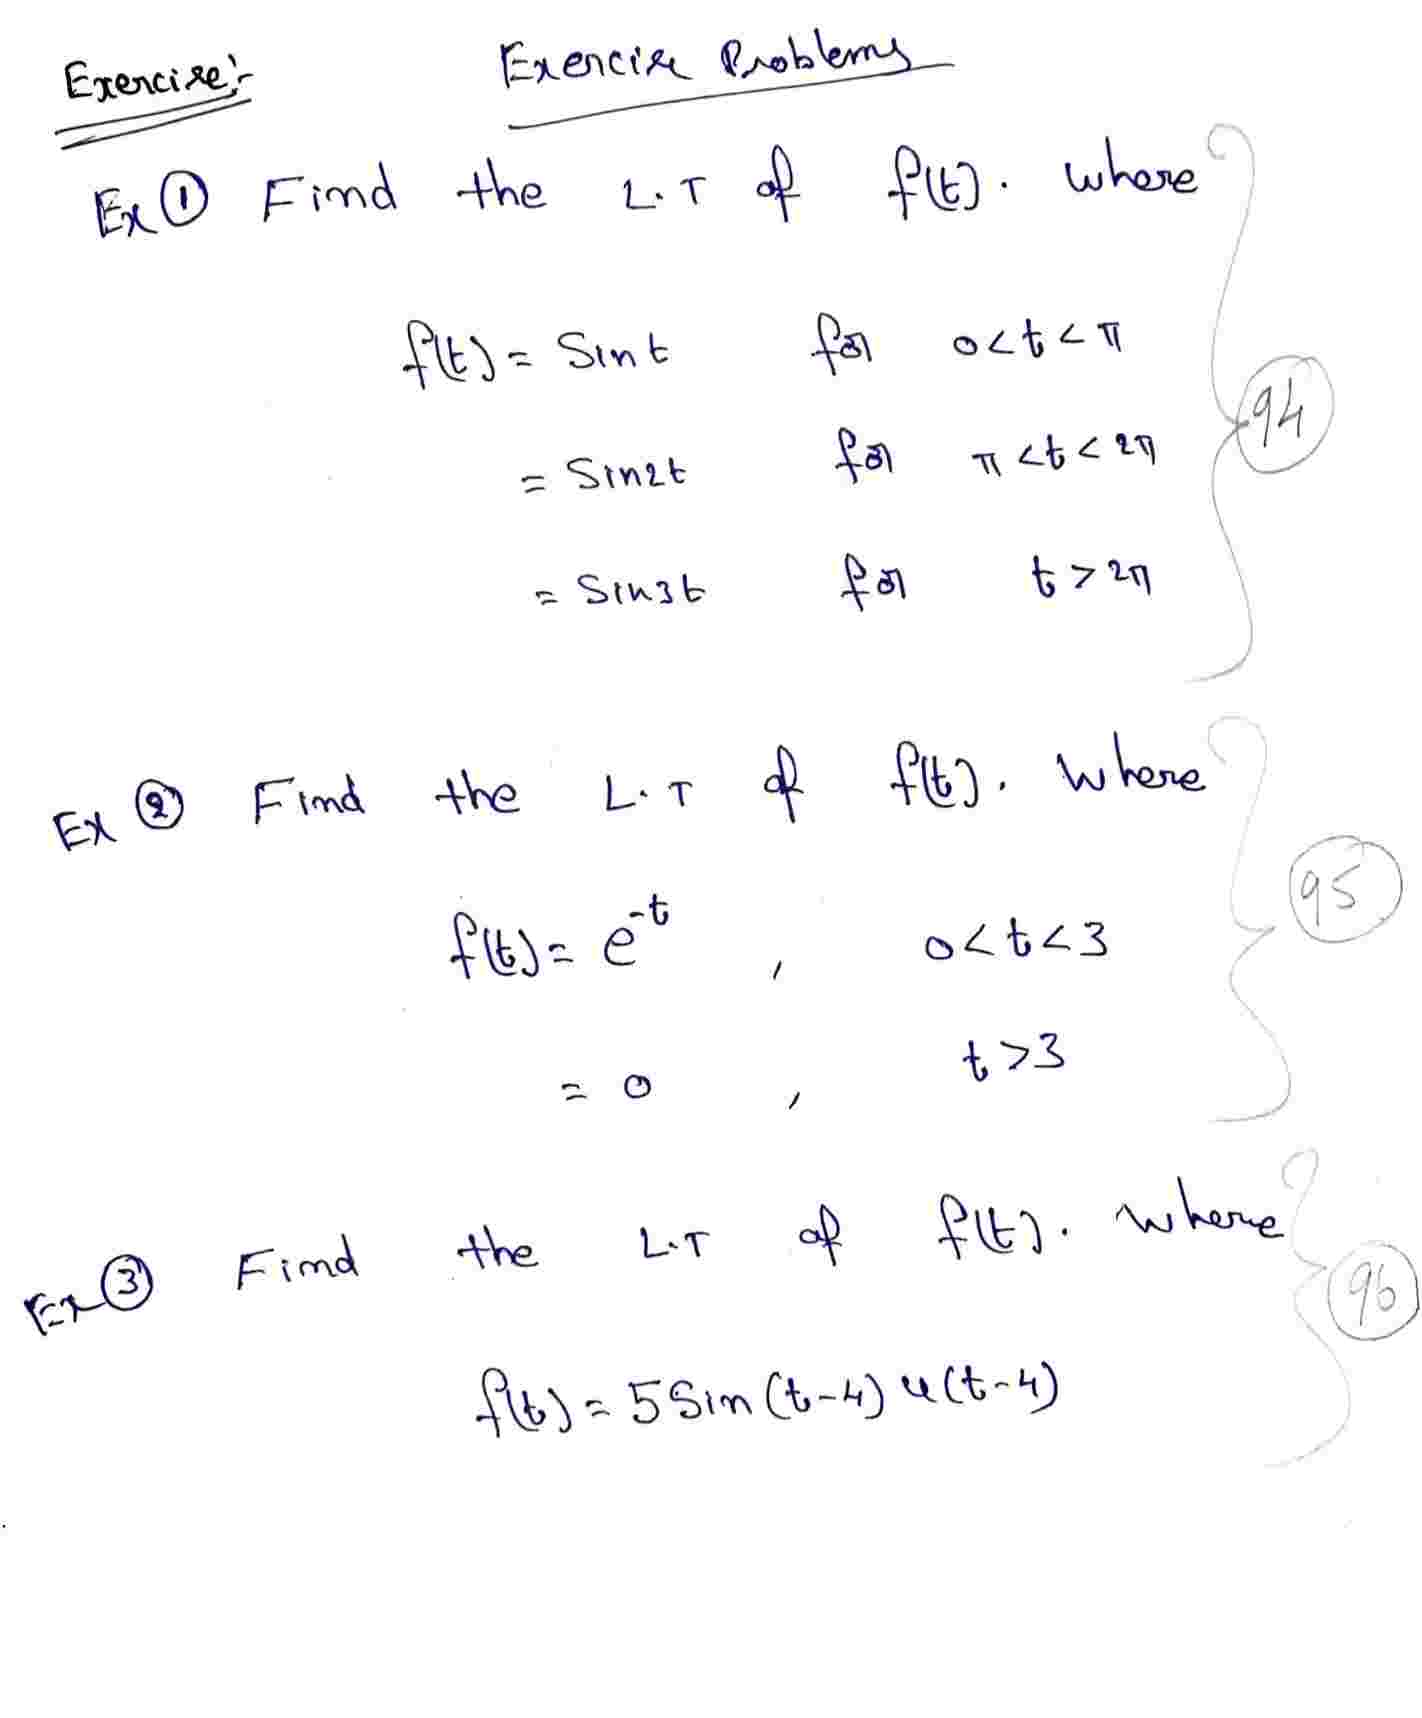 Exercise:-
Exercise Problems
Ex ① Find the L.T of f(t). where
f(t) = Sin t for 0<t<π
= Sin2t for π<t<2π
= Sin3t for t>2π
94
Ex ② Find the L.T of f(t). Where
f(t) = e^-t , 0<t<3
= 0 , t>3
95
Ex ③ Find the L.T of f(t). where
f(t) = 5 Sin (t-4) u(t-4)
96